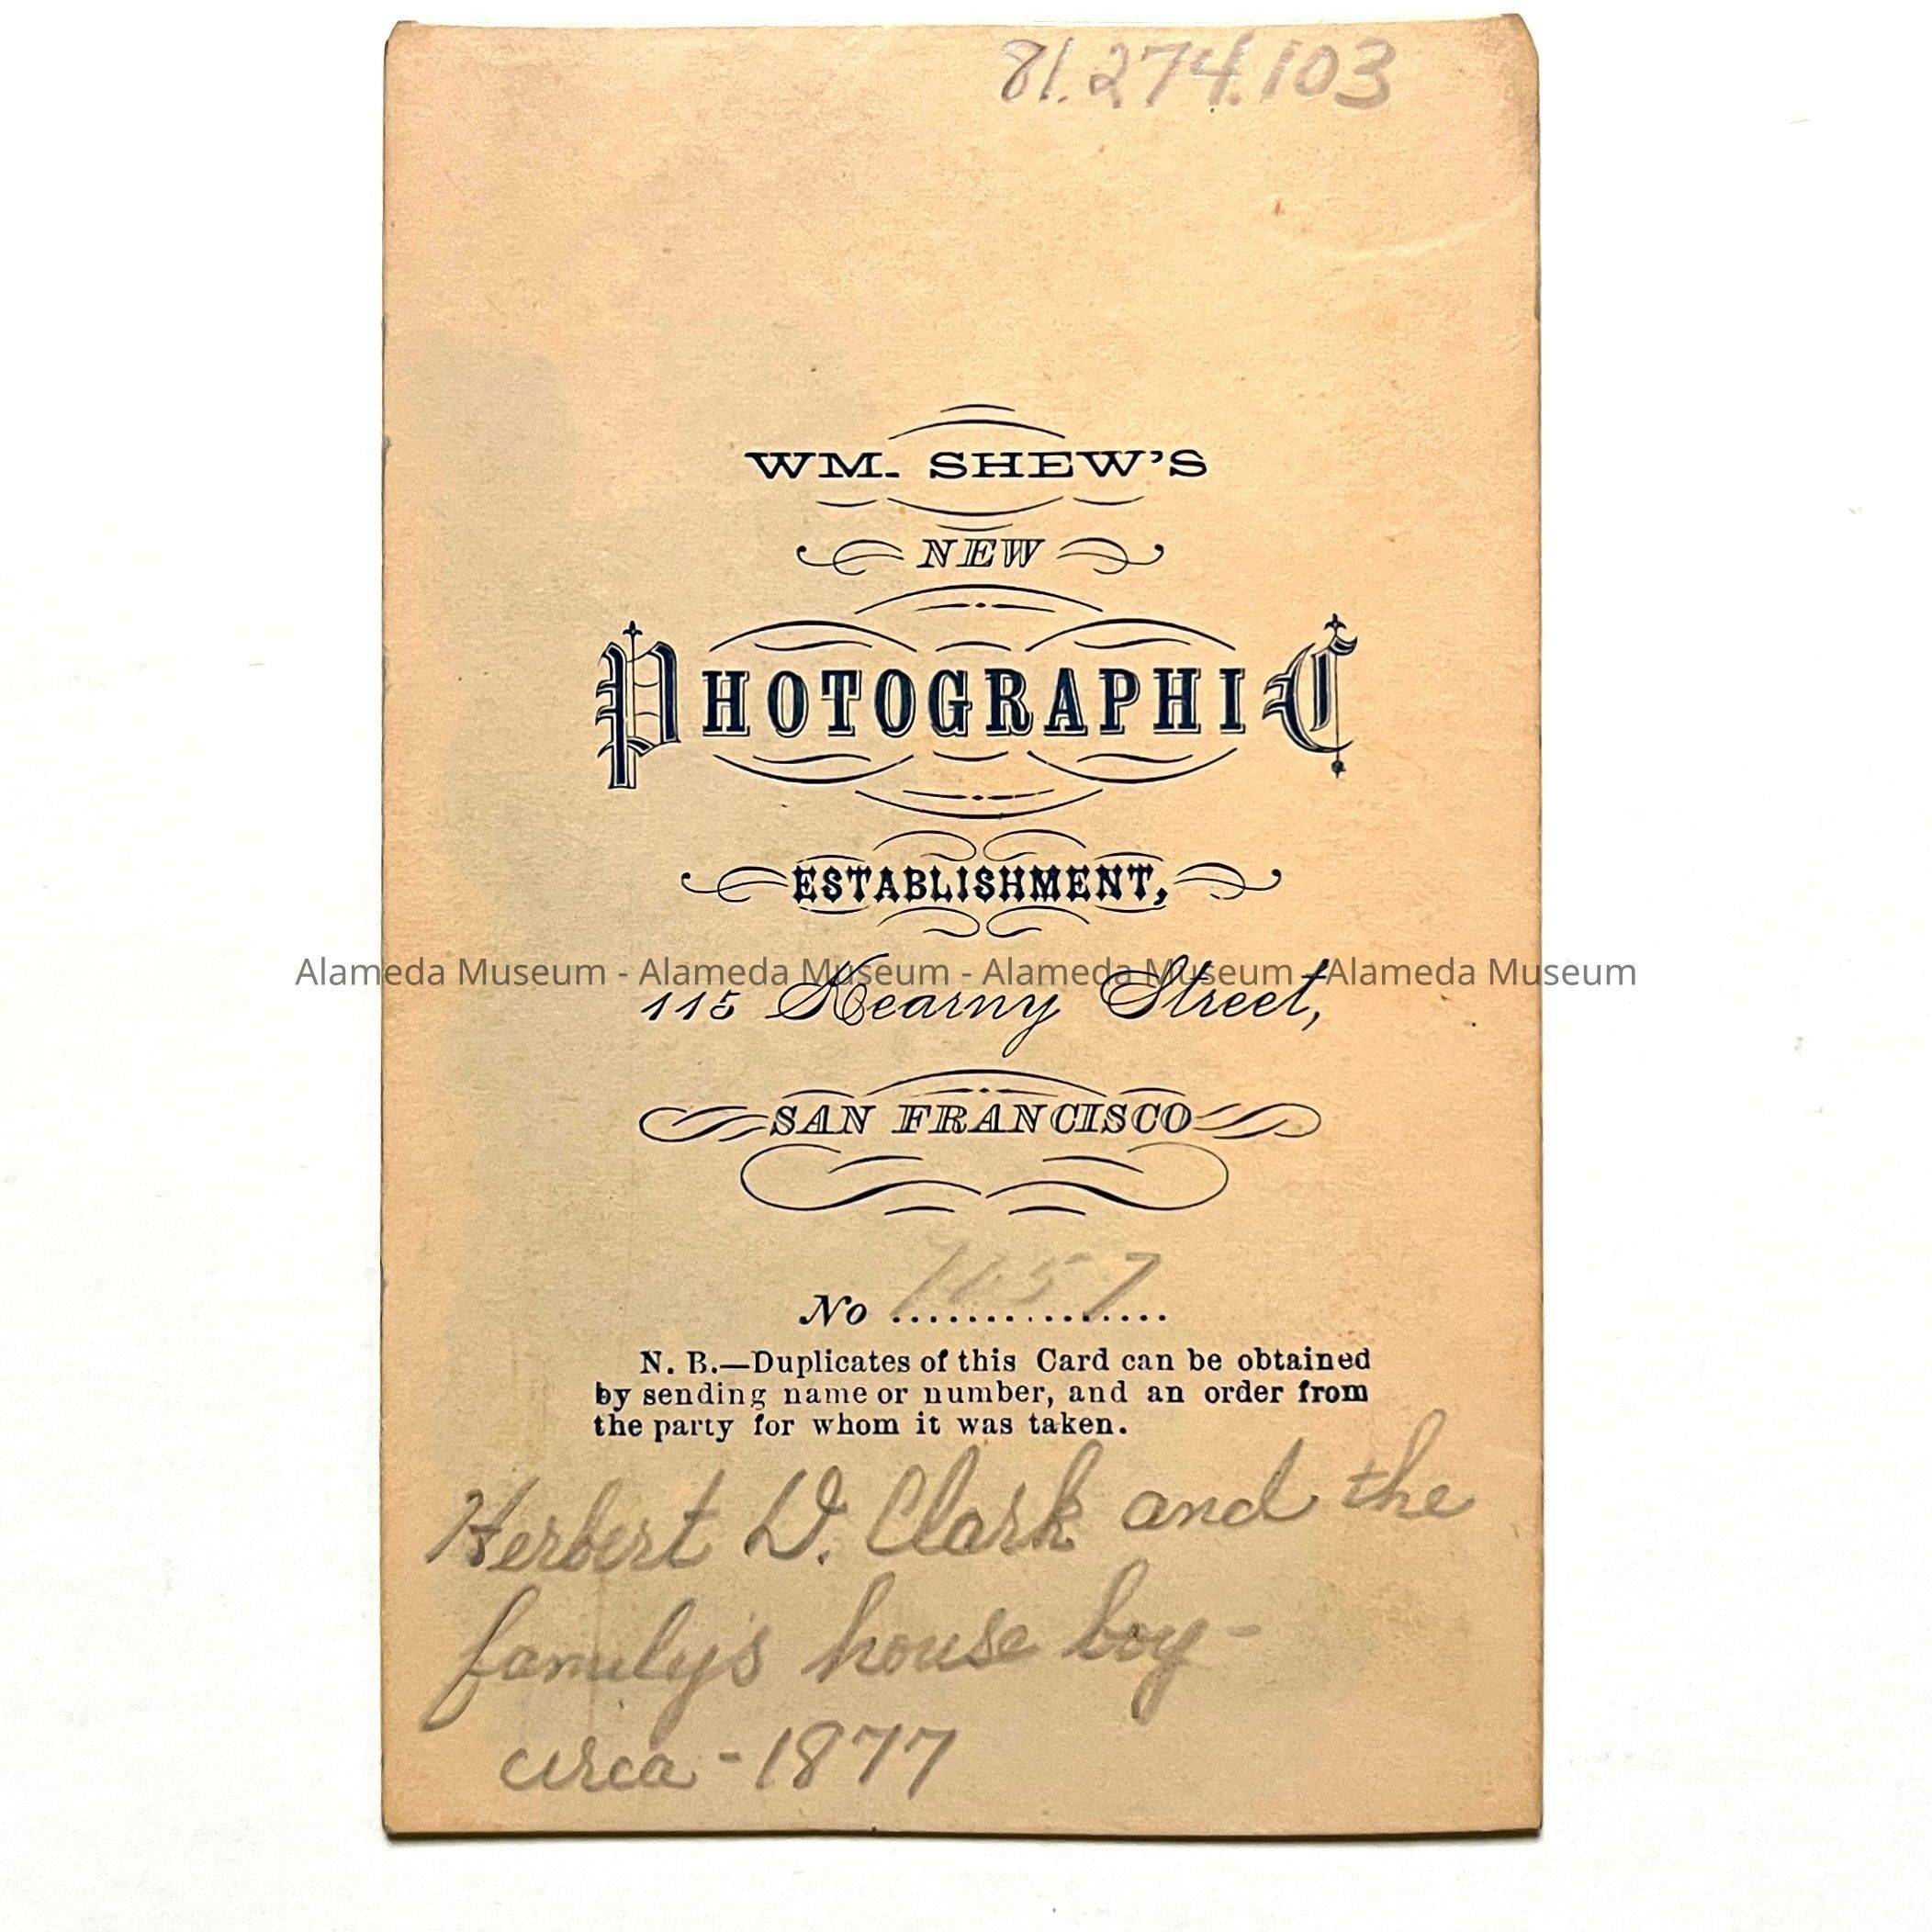 81.274.103
WM. SHEW'S
NEW
PHOTOGRAPHIC
ESTABLISHMENT,
Alameda Museum - Alameda Museum - Alameda Museum - Alameda Museum
115 Kearny Street,
SAN FRANCISCO
No ................
N. B.—Duplicates of this Card can be obtained
by sending name or number, and an order from
the party for whom it was taken.
Herbert D. Clark and the
family's house boy -
circa - 1877